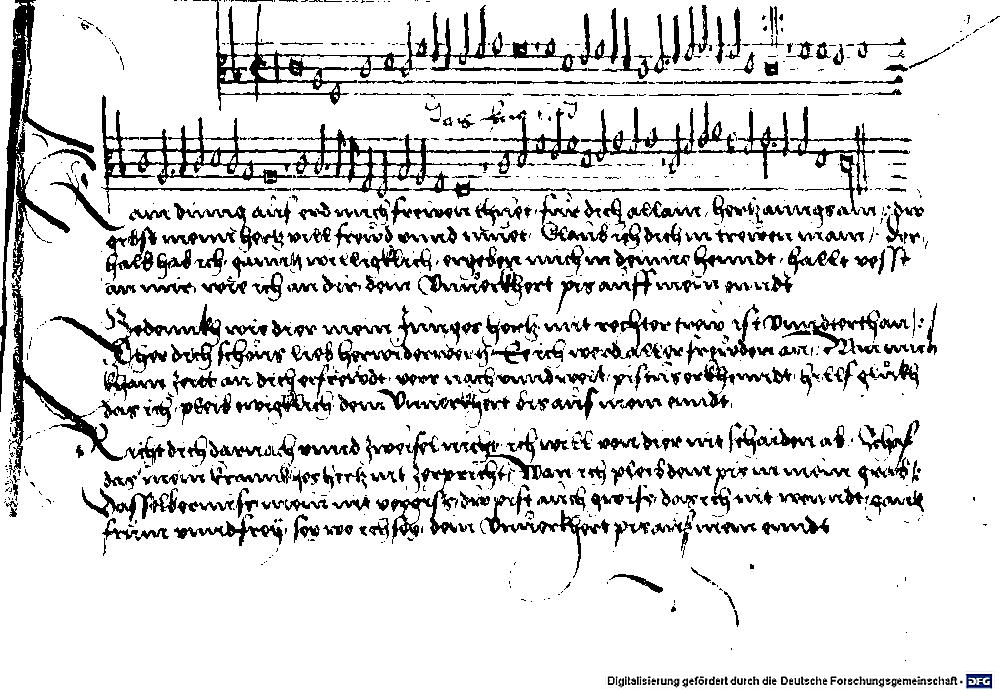 Kain dinng auf erd mich frewen thuet, für dich allain, hertz ainigs ain, dw
gebst meim hertz vill frewd vnnd muet. Glaub ich dich in trewen main, Der,
halb hab ich, gantz willigklich, ergeben mich in deine henndt, hallt vesst
an mir, wie ich an dir, dein Vnuerkhert pis auff mein enndt
Gedennkh wie dier mein Junges hertz mit rechter trew ist Vnndterthan,
dich schöns lieb herwiderwertz Ee ich werd aller frewden an, Nun mich
khain Zeitt an dich erfrewdt, verr nach vnnd weit, pis mir erkhenndt, hillf glükh
das ich pleib ewigklich dein Vnuerkhert bis auf mein enndt,
Richt dich darnach vnnd Zweifel nicht, ich will von dier nit schaiden ab, Schaf
das mein krannkhes hertz nit Zerpricht, Wan ich pleib dein pis in mein grab,
Dasselb mein nit vergiss, dw pist auch gwiss, das ich nit wenndt, ganz
frum vnnd frey, sey wo ich sey, dein Vnuerkhert pis auf mein enndt
Digitalisierung gefördert durch die Deutsche Forschungsgemeinschaft - DFG